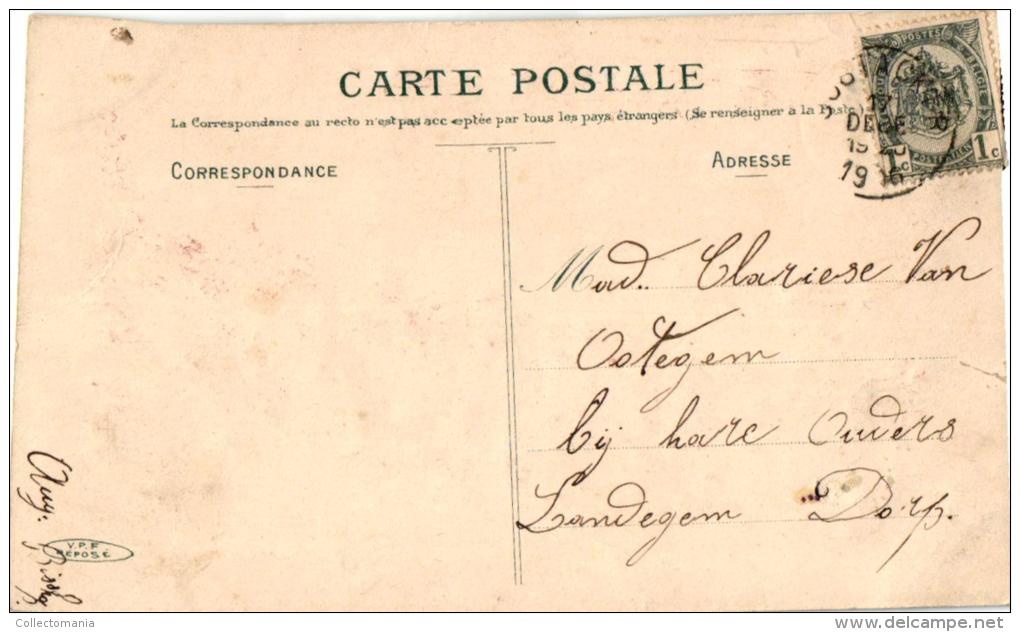 CARTE POSTALE
La Correspondance au recto n'est pas acceptée par tous les pays étrangers (Se renseigner à la Poste)
CORRESPONDANCE
ADRESSE
POSTES
1c 1c
DE
19
Mad. Clariese Van
Ootegem
bij hare Ouders
Landegem Dorp.
Aug:
V.P.F
DÉPOSÉ
Collectomania
www.delcampe.net